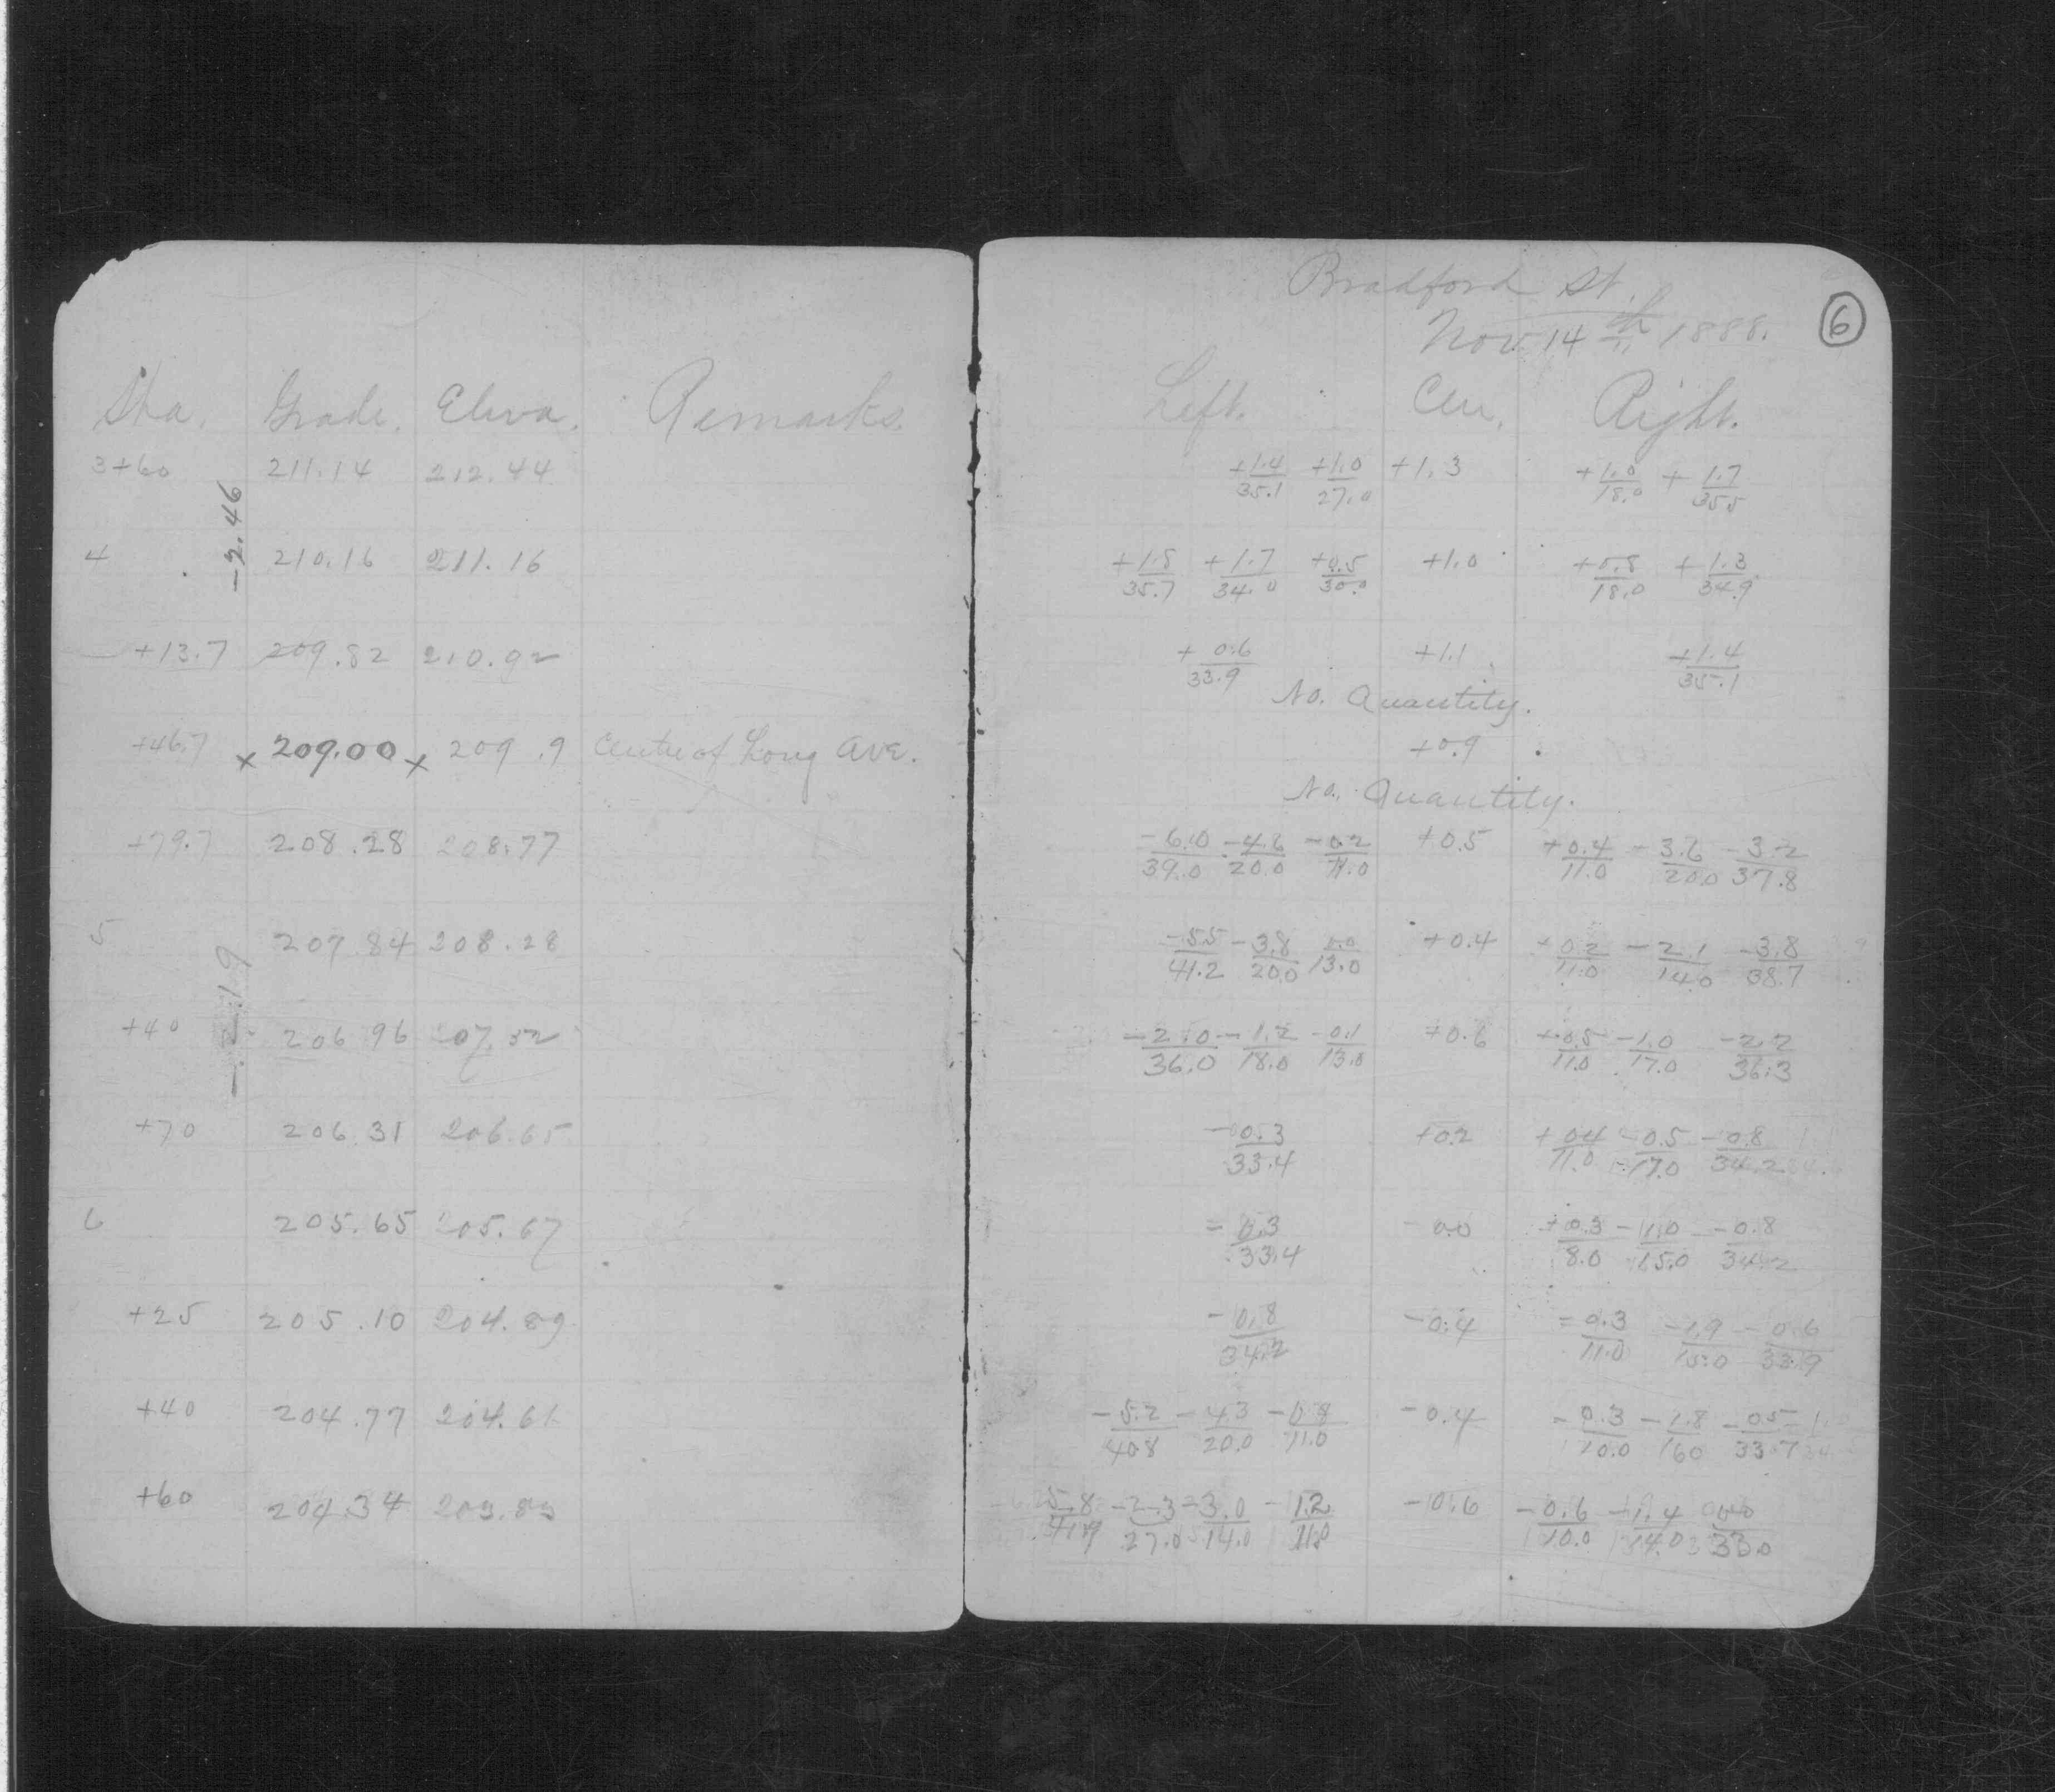 Sta. Grade. Eleva. Remarks.
3+60 211.14 212.44
-2.46
4 210.16 211.16
+13.7 209.82 210.92
+46.7 x 209.00 x 209.9 Centre of Long Ave.
+79.7 208.28 208.77
5 207.84 208.28
+40 206.96 207.52
+70 206.31 206.65
6 205.65 205.67
+25 205.10 204.89
+40 204.77 204.61
+60 204.34
Bradford St.
Nov. 14th 1888.
6
Left. Cen. Right.
+1.4/35.1 +1.0/27.0 +1.3 +1.0/18.0 +1.7/35.5
+1.8/35.7 +1.7/34.0 +0.5/30.0 +1.0 +0.8/18.0 +1.3/34.9
+0.6/33.9 +1.1 +1.4/35.1
No. Quantity.
+0.9
No. Quantity.
-6.0/39.0 -4.6/20.0 -0.2/11.0 +0.5 +0.4/11.0 -3.6/20.0 -3.2/37.8
-5.5/41.2 -3.8/20.0 0.0/13.0 +0.4 +0.2/11.0 -2.1/14.0 -3.8/38.7
-2.0/36.0 -1.2/18.0 -0.1/13.0 +0.6 +0.5/11.0 -1.0/17.0 -2.2/36.3
-0.3/33.4 +0.2 +0.4/11.0 -0.5/17.0 -0.8/34.2
-0.3/33.4 -0.0 +0.3/8.0 -1.0/15.0 -0.8/34.2
-0.8/34.2 -0.4 -0.3/11.0 -1.9/15.0 -0.6/33.9
-5.2/40.8 -4.3/20.0 -0.8/11.0 -0.4 -0.3/10.0 -1.8/16.0 -0.5/33.7
5.8 -2.3/27.0 -3.0/14.0 -1.2/11.0 -0.6 -0.6/10.0 -1.4/14.0 0.0/33.0